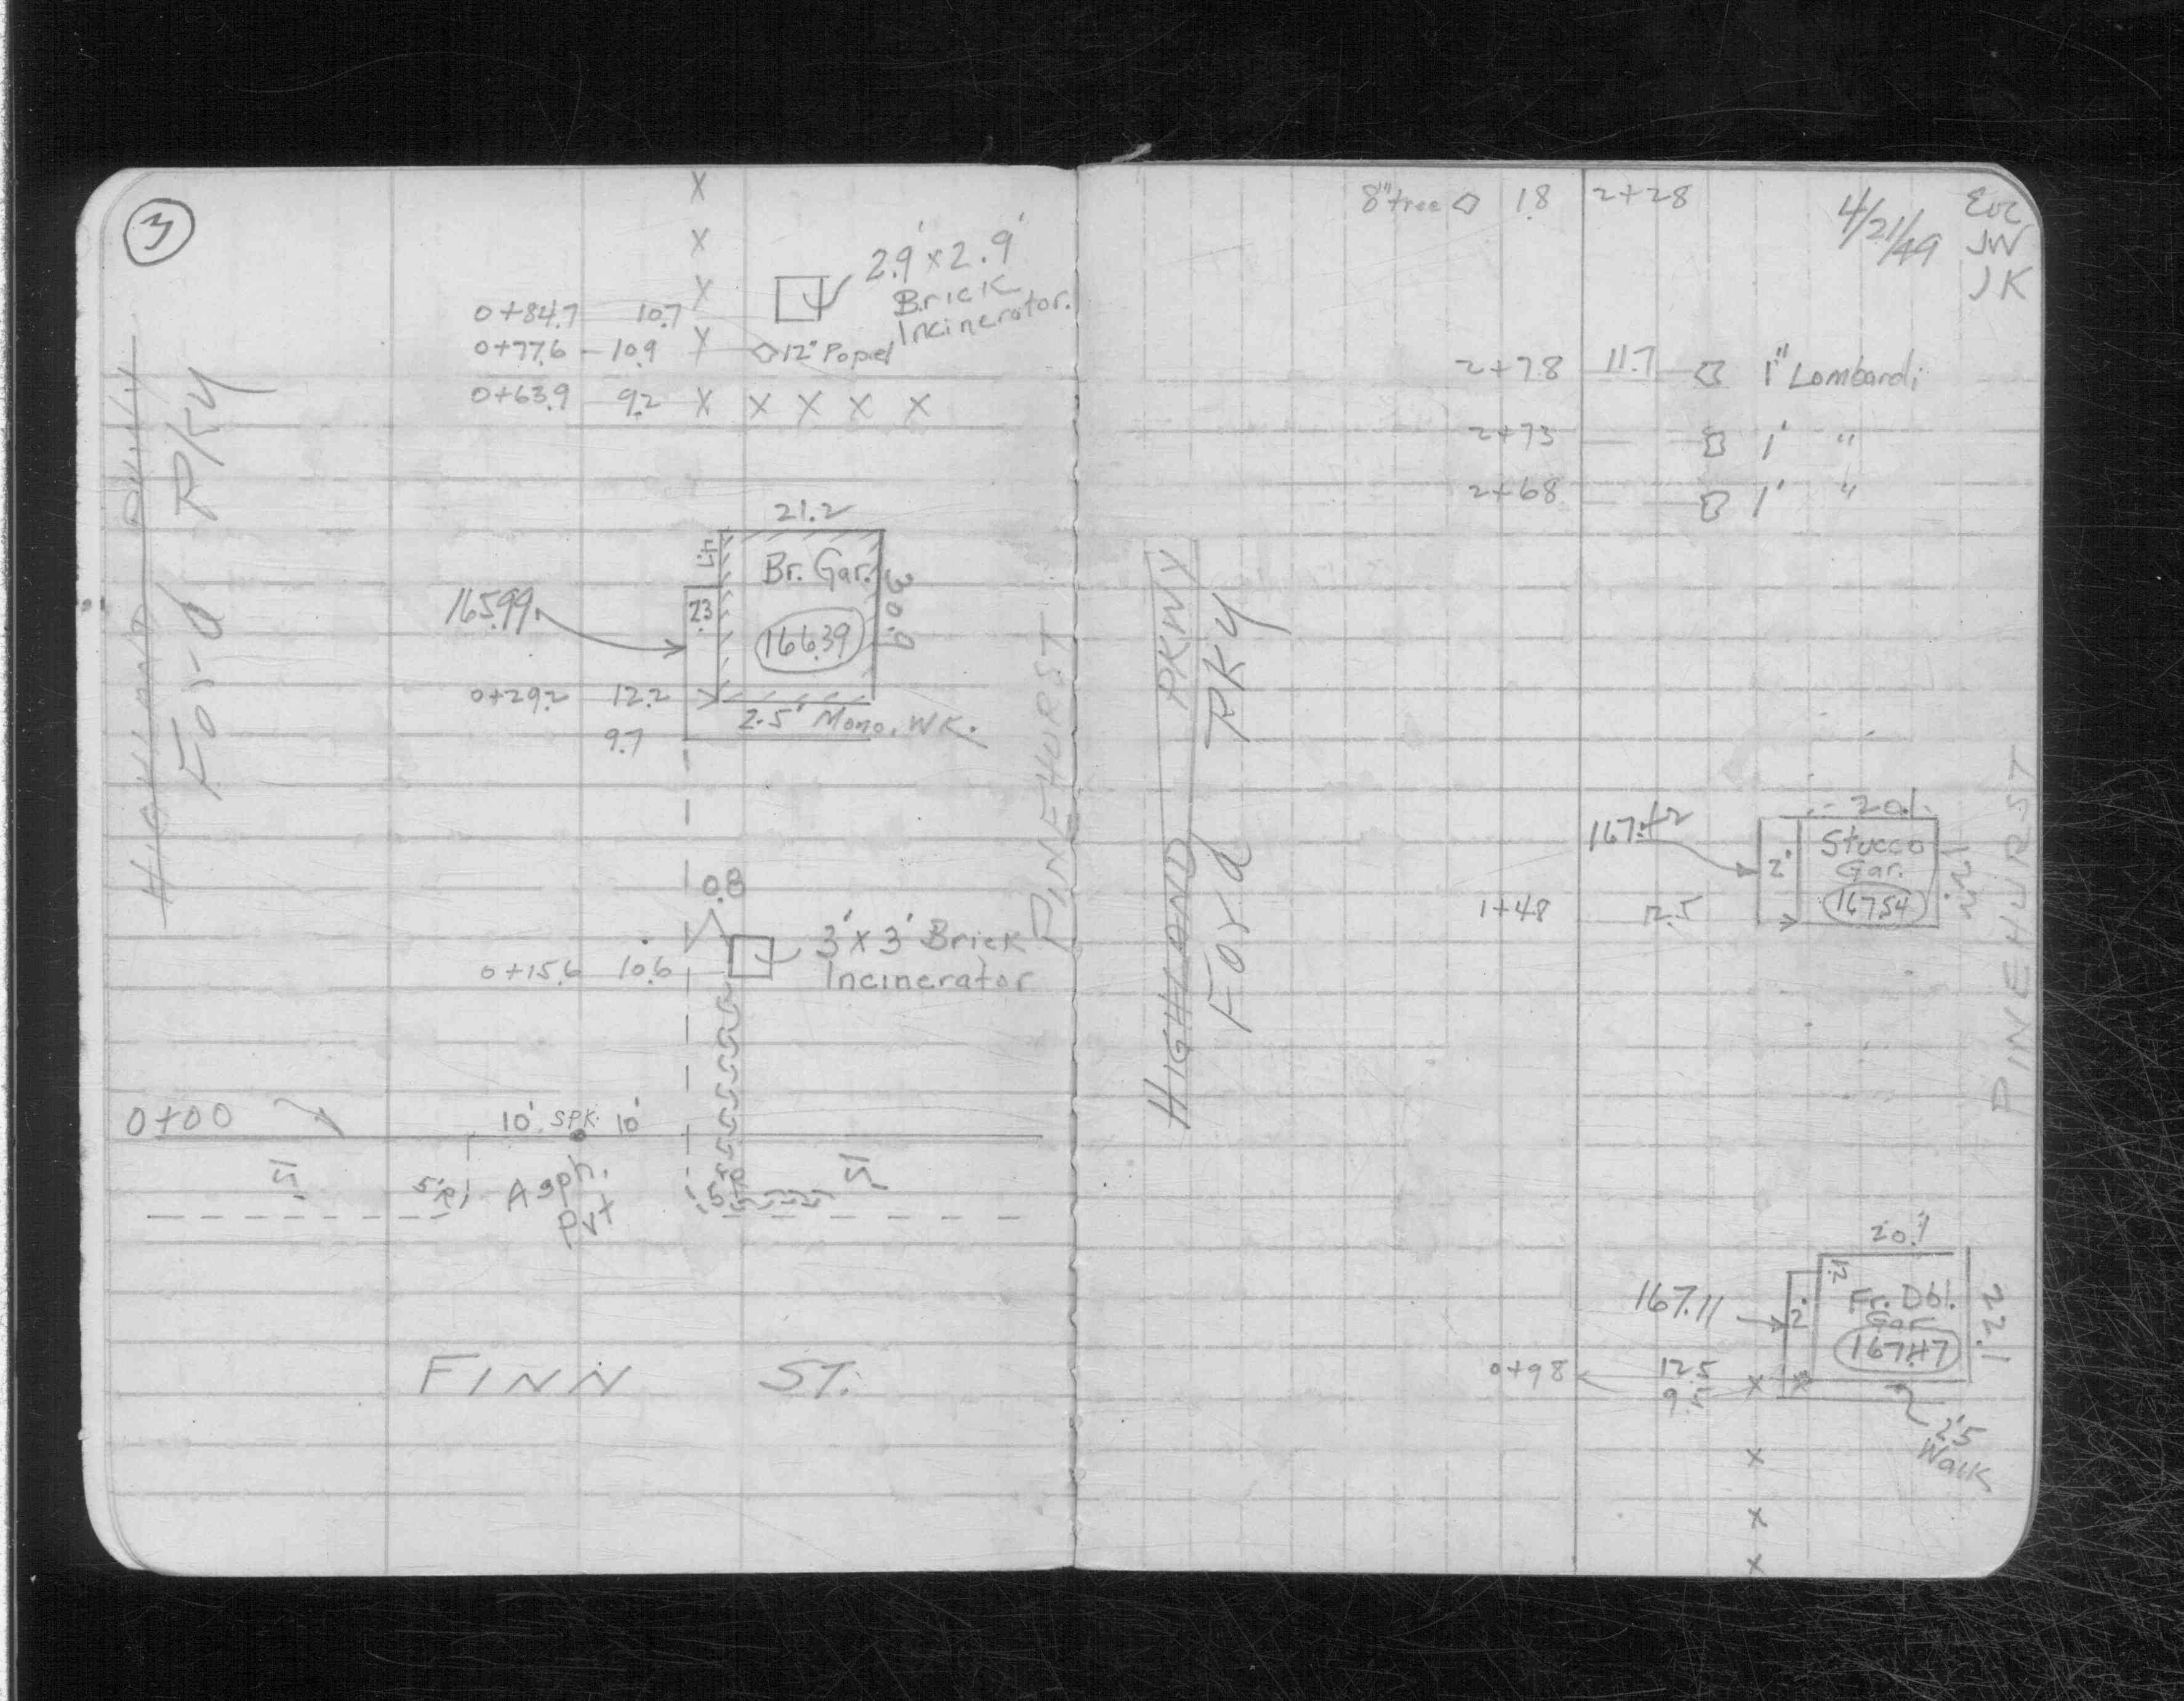 3
2.9' x 2.9'
Brick
Incinerator.
0+84.7 10.7
0+77.6 10.9 12" Poplel
0+63.9 9.2 X X X X X
HIGHLAND PKWY
Ford PKy
21.2
Br. Gar.
30.0
165.99
2.3
166.39
0+29.2 12.2
2.5' Mono. WK.
9.7
PINEHURST
0.8
3' x 3' Brick
Incinerator
0+15.6 10.6
0+00
10' SPK. 10'
15'
5'R
Asph.
Pvt
5'R
15'
FINN ST.
8" tree 1.8 2+28
4/21/49
JW
JK
2+78 11.7 1" Lombardi
2+73 1' "
2+68 1' "
HIGHLAND PKWY
Ford PKy
20.1
167.42
2'
Stucco
Gar.
167.54
22.1
1+48 12.5
PINEHURST
20.1
167.11
2'
Fr. Dbl.
Gar
167.47
22.1
0+98 12.5
9.5
2.5
Walk